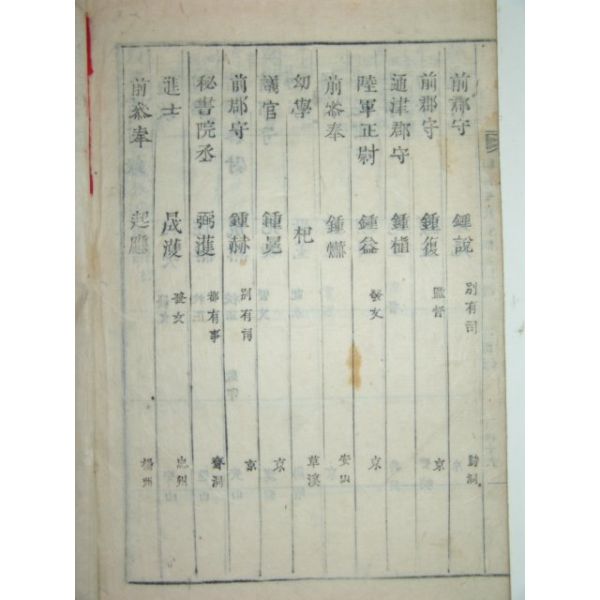 前郡守 鍾說 別有司
前郡守 鍾復 監督 京
通津郡守 鍾植 京
陸軍正尉 鍾益 發文 京
前參奉 鍾爀 安山
幼學 杞 草溪
議官 鍾冕 京
前郡守 鍾赫 別有司 京
秘書院丞 弼濩 都有事 齋洞
進士 晟濩 發文 忠州
前參奉 起應 楊州